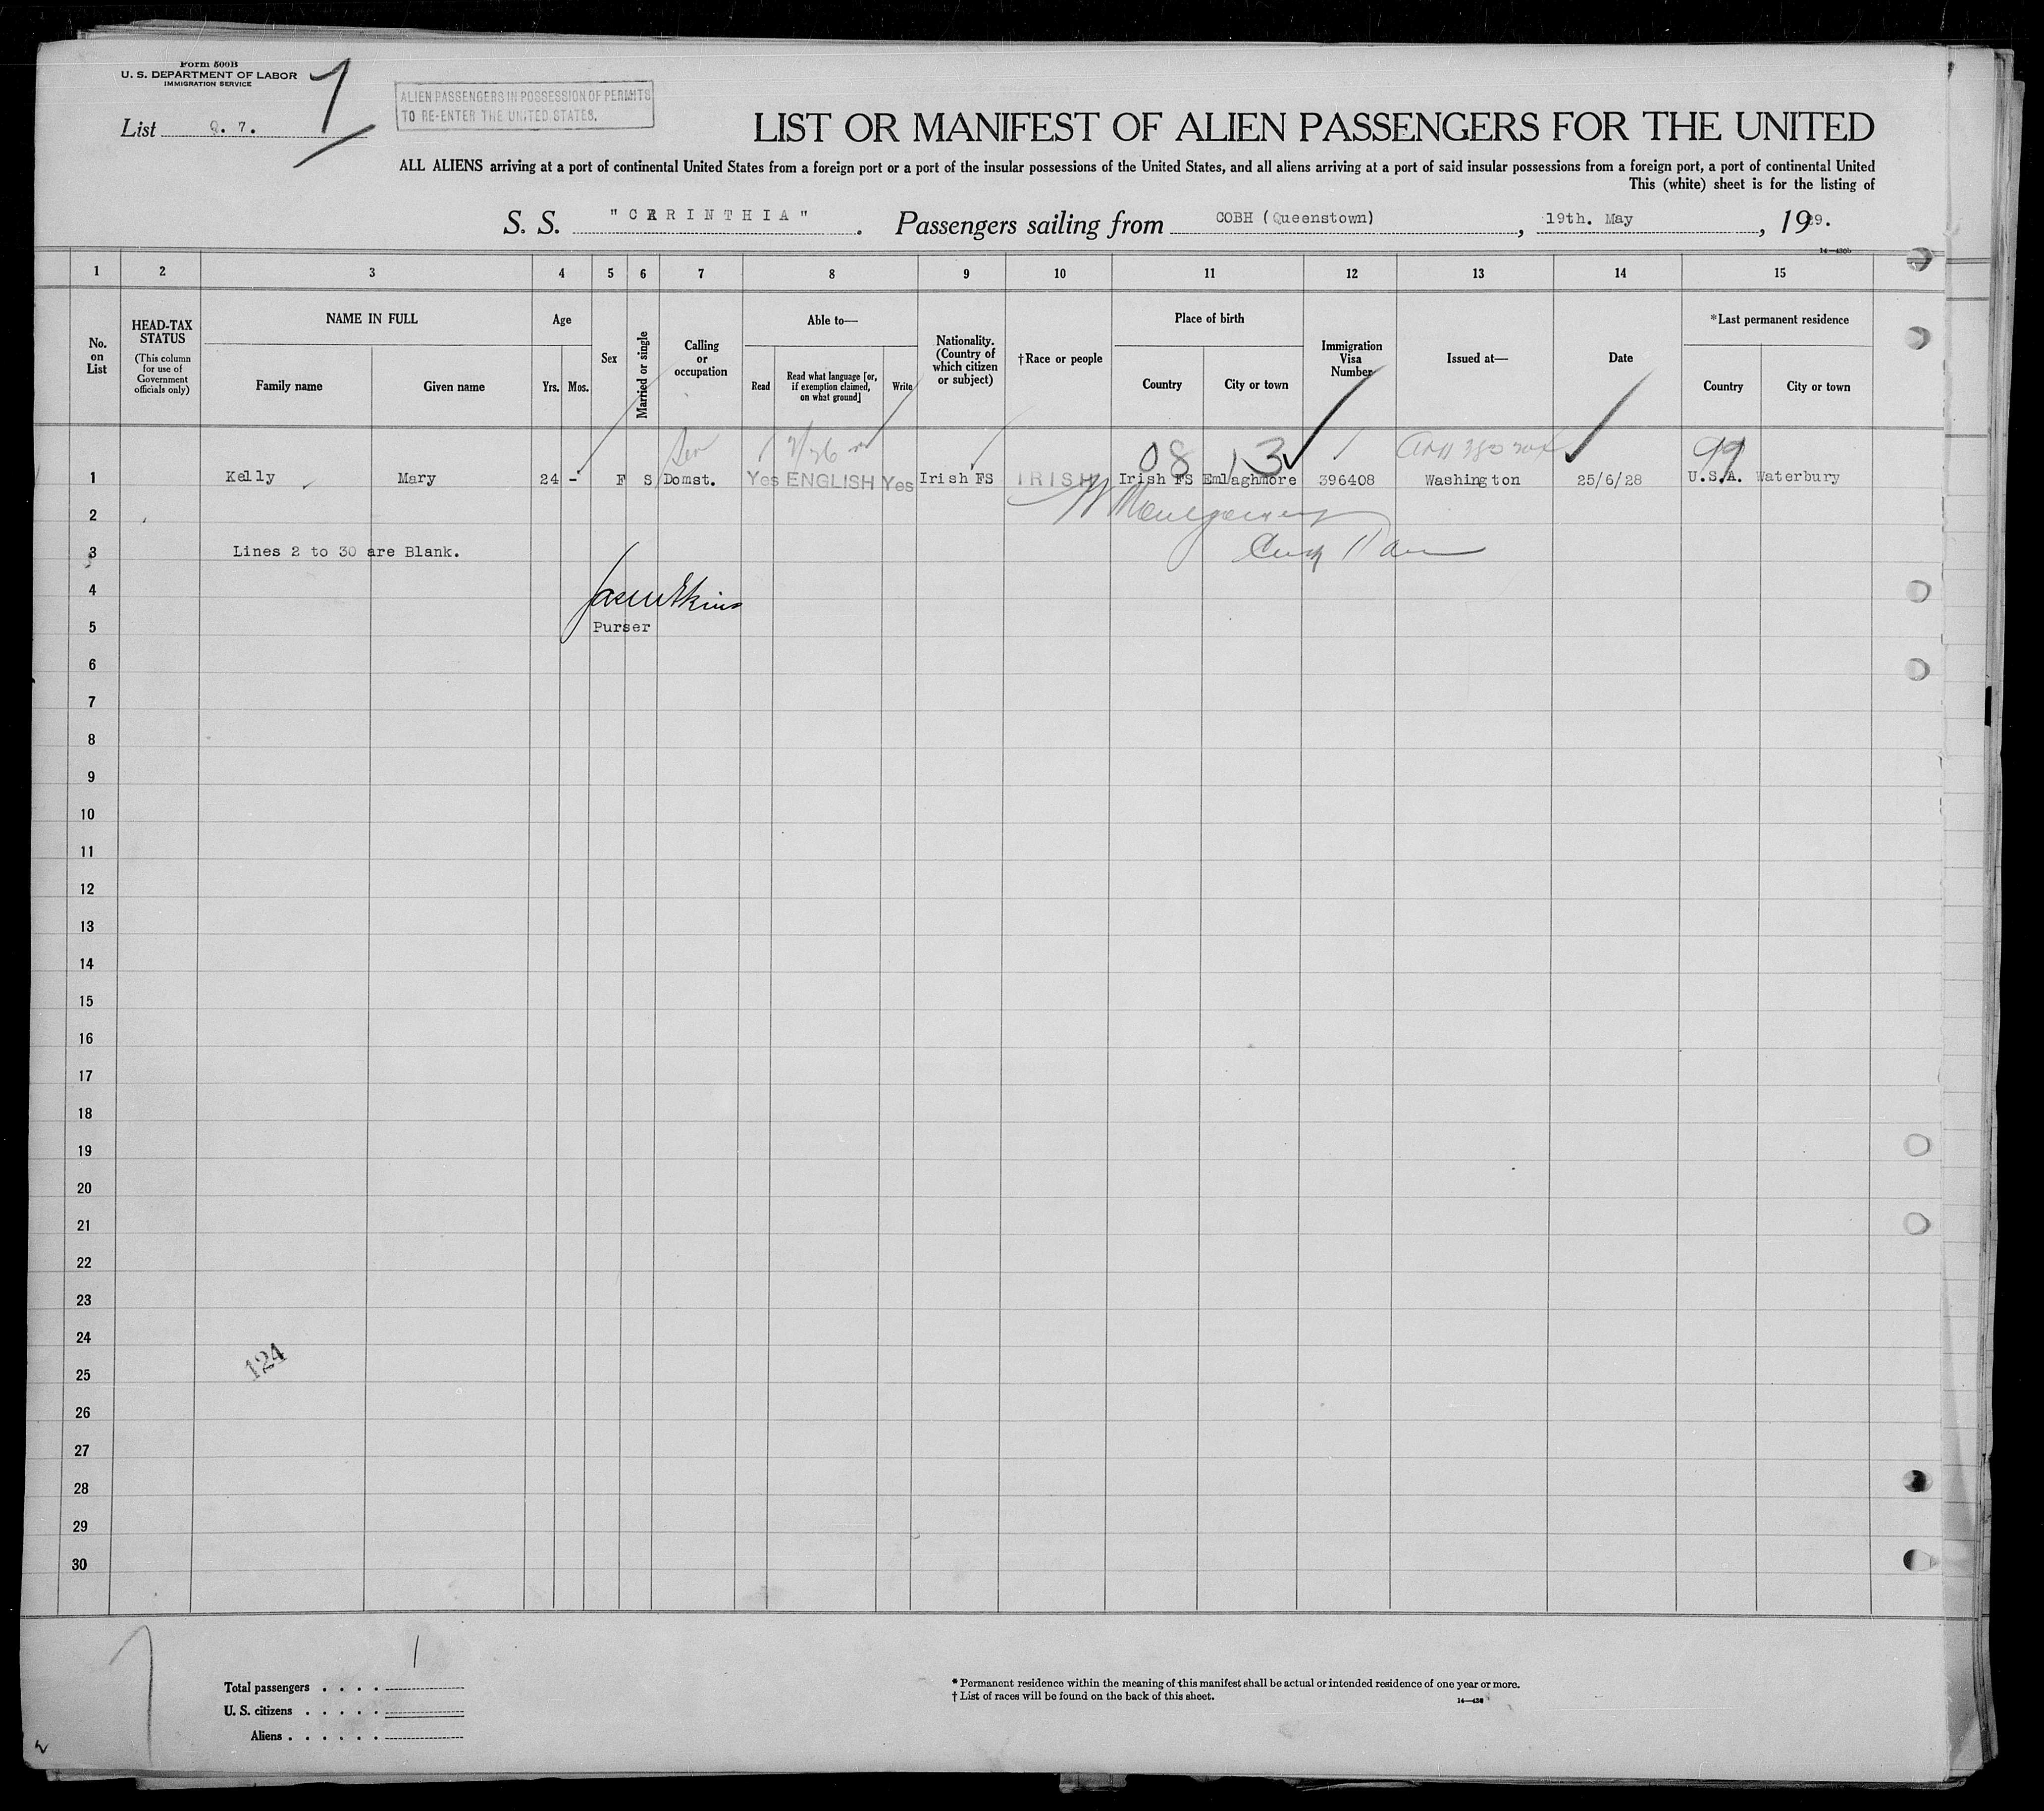 Form 500B
U. S. DEPARTMENT OF LABOR
IMMIGRATION SERVICE
List Q. 7.
7
ALIEN PASSENGERS IN POSSESSION OF PERMITS
TO RE-ENTER THE UNITED STATES.
LIST OR MANIFEST OF ALIEN PASSENGERS FOR THE UNITED
ALL ALIENS arriving at a port of continental United States from a foreign port or a port of the insular possessions of the United States, and all aliens arriving at a port of said insular possessions from a foreign port, a port of continental United
This (white) sheet is for the listing of
S. S. "CARINTHIA". Passengers sailing from COBH (Queenstown), 19th. May, 1929.
14—430b
1 2 3 4 5 6 7 8 9 10 11 12 13 14 15
No. on List
HEAD-TAX STATUS
(This column for use of Government officials only)
NAME IN FULL
Family name Given name
Age
Yrs. Mos.
Sex
Married or single
Calling or occupation
Able to—
Read
Read what language [or, if exemption claimed, on what ground]
Write
Nationality. (Country of which citizen or subject)
†Race or people
Place of birth
Country City or town
Immigration Visa Number
Issued at—
Date
*Last permanent residence
Country City or town
08 13 99
1 Kelly Mary 24 - F S Domst. Yes ENGLISH Yes Irish FS IRISH Irish FS Emlaghmore 396408 Washington 25/6/28 U.S.A. Waterbury
2
3 Lines 2 to 30 are Blank.
4
5 Purser
6
7
8
9
10
11
12
13
14
15
16
17
18
19
20
21
22
23
24
124
25
26
27
28
29
30
Total passengers . . . . 1
U. S. citizens . . . . .
Aliens . . . . . .
* Permanent residence within the meaning of this manifest shall be actual or intended residence of one year or more.
† List of races will be found on the back of this sheet.
14—430